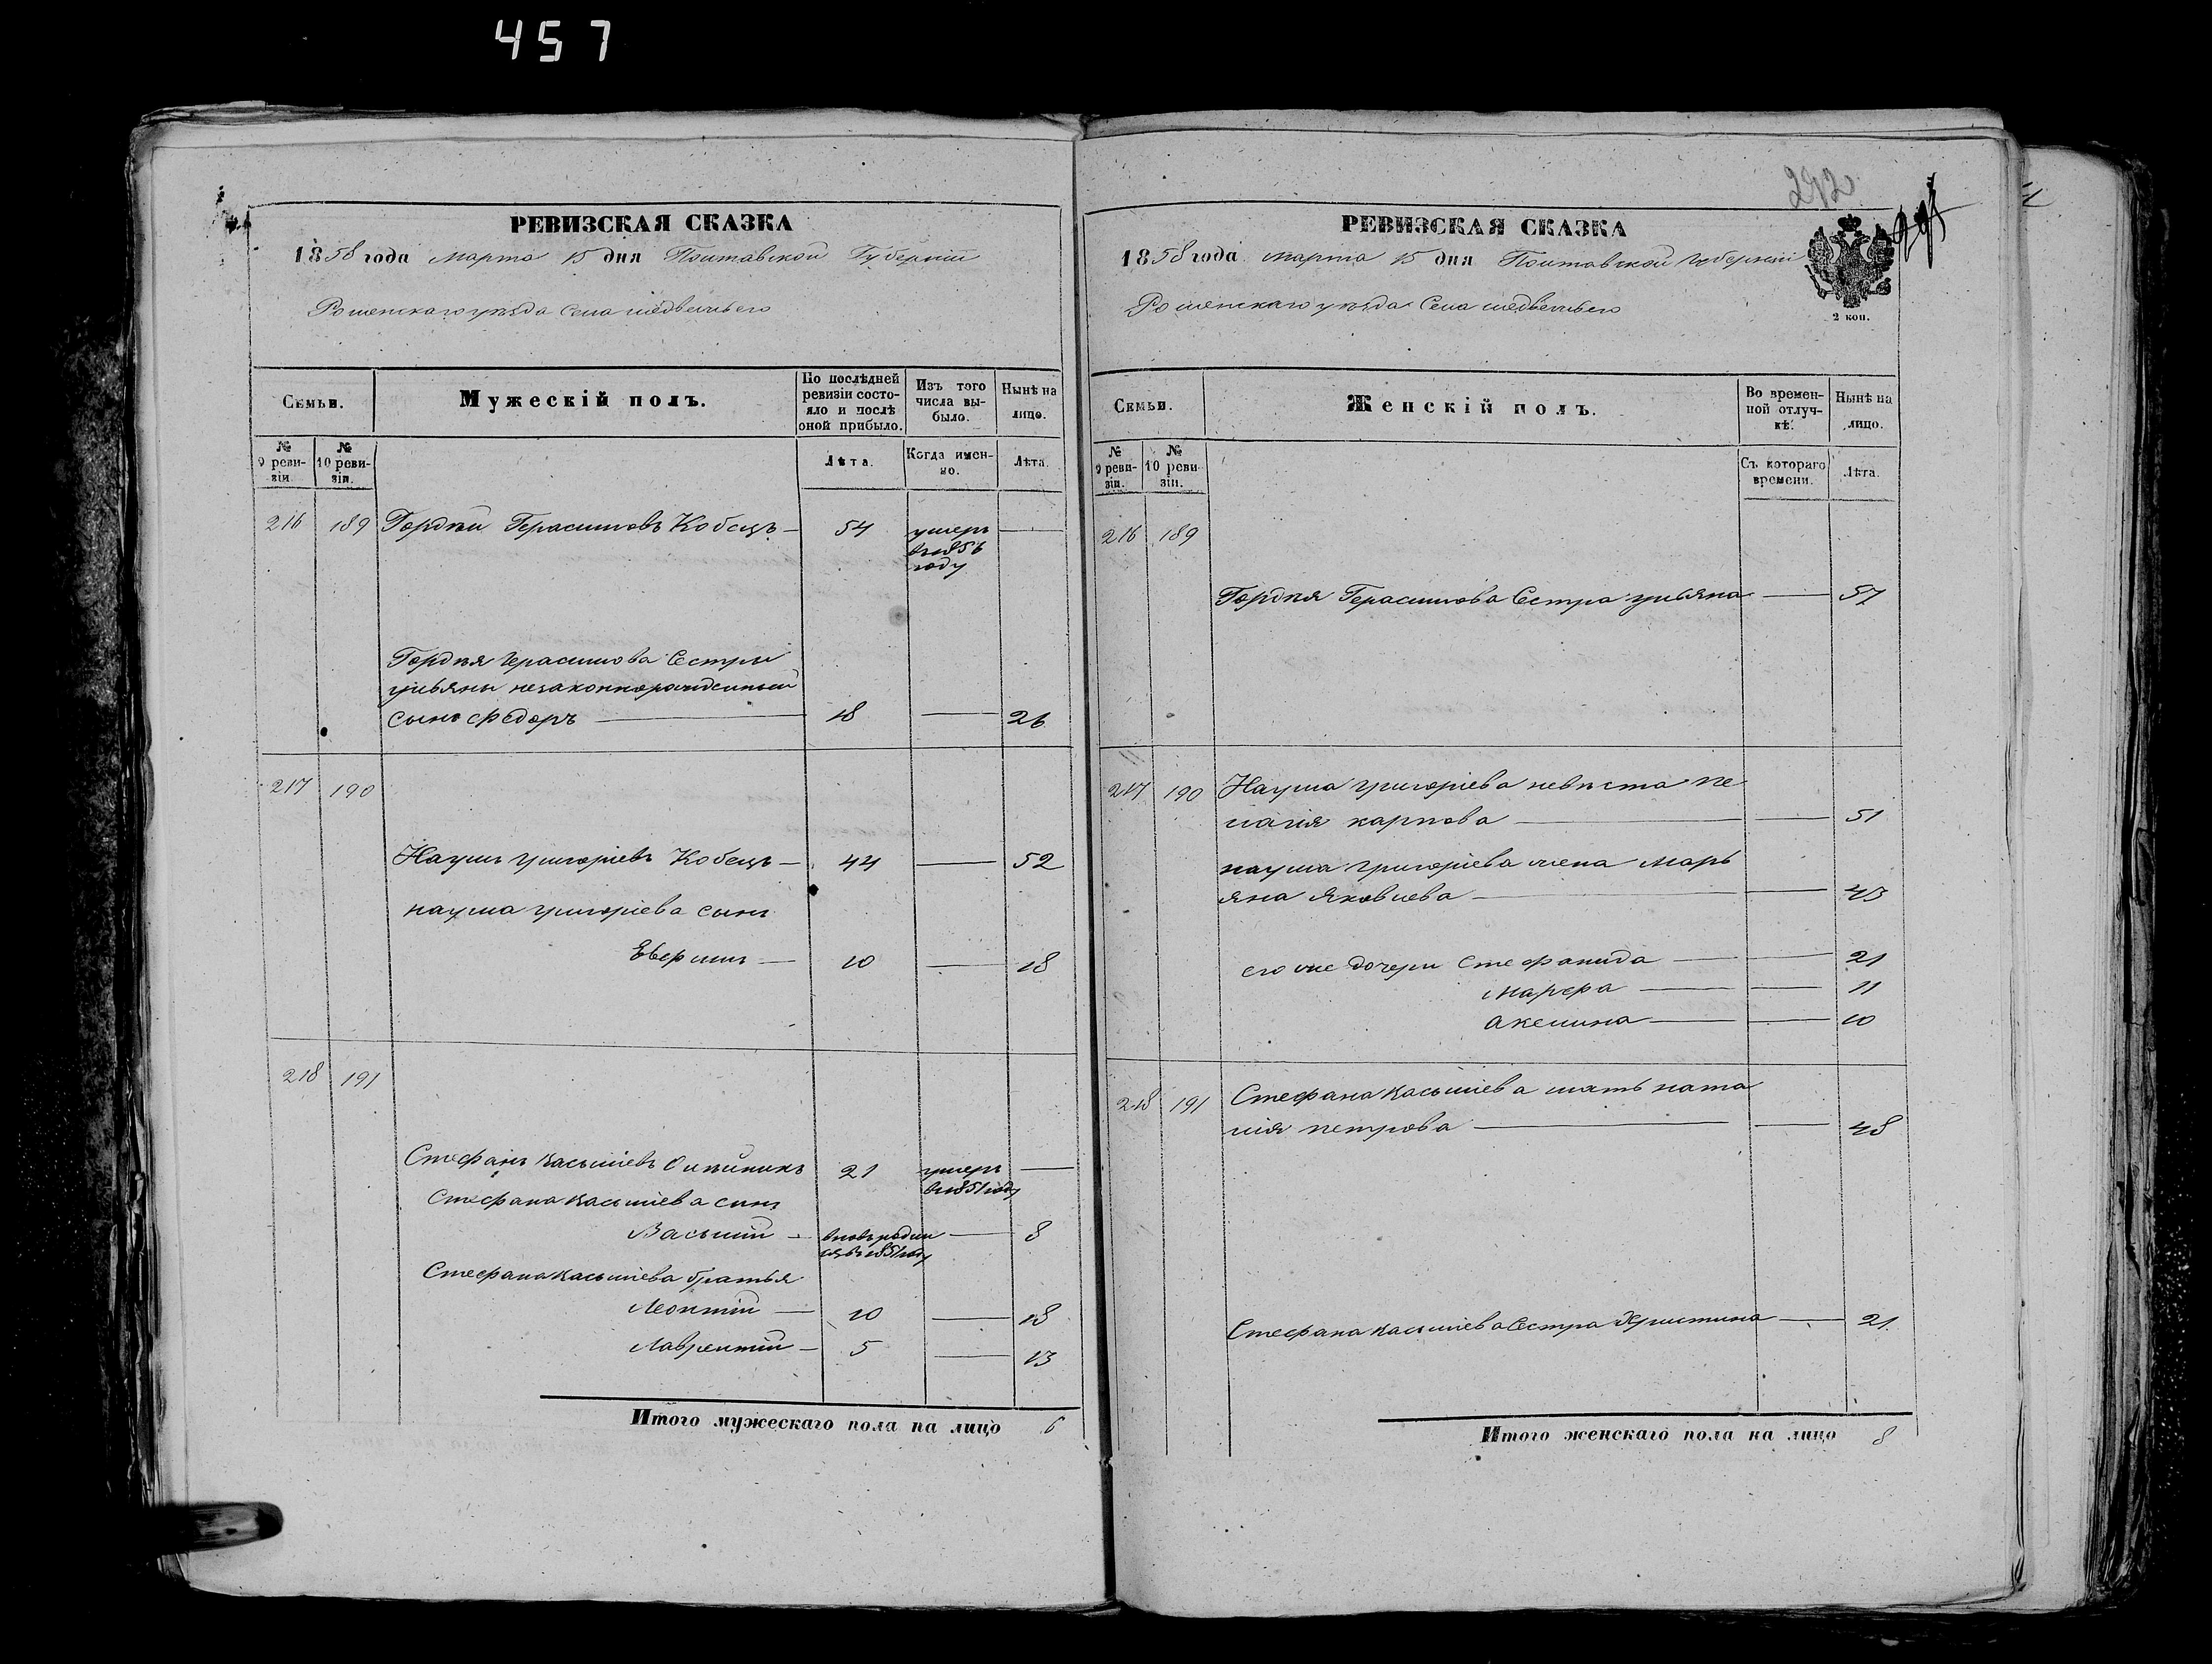 457
РЕВИЗСКАЯ СКАЗКА
1858 года Марта 15 дня Полтавской Губерніи
Роменскаго уѣзда Села Медвежьего
Семьи.
Мужескій полъ.
По послѣдней ревизіи состояло и послѣ оной прибыло.
Изъ того числа выбыло.
Нынѣ на лицо.
№ 9 ревизіи.
№ 10 ревизіи.
Лѣта.
Когда именно.
Лѣта.
216 189 Гордѣй Герасимовъ Кобецъ — 54 умеръ —
въ 1856
году
Гордѣя Герасимова Сестры
ульяны незаконнорожденный
сынъ федоръ — 18 — 26
217 190
Наумъ григоріевъ Кобецъ — 44 — 52
наума григоріева сынъ
— 10 — 18
218 191
Стефанъ Касьянов 21 умеръ —
въ 1851 году
Стефана сынъ
Василій — вновь родил — 8
ся въ 1851 году
Стефана братья
Леонтій — 10 — 18
Лаврентій — 5 — 13
Итого мужескаго пола на лицо 6
242
РЕВИЗСКАЯ СКАЗКА
1858 года марта 15 дня Полтавской губерніи
Роменскаго уѣзда Села медвежьего
2 коп.
Семьи.
Женскій полъ.
Во временной отлучкѣ.
Нынѣ на лицо.
№ 9 ревизіи.
№ 10 ревизіи.
Съ котораго времени.
Лѣта.
216 189
Гордѣя Герасимова Сестра ульяна — 57
217 190 Наума григоріева невѣста Пе
лагія карпова — — 51
наума григоріева жена Марь
яна Яковлева — — 43
его же дочери Стефанида — — 21
Марфа — — 11
Акелина — — 10
218 191 Стефана мать ната
лія петрова — — 48
Стефана Сестра Христина — 21
Итого женскаго пола на лицо 8